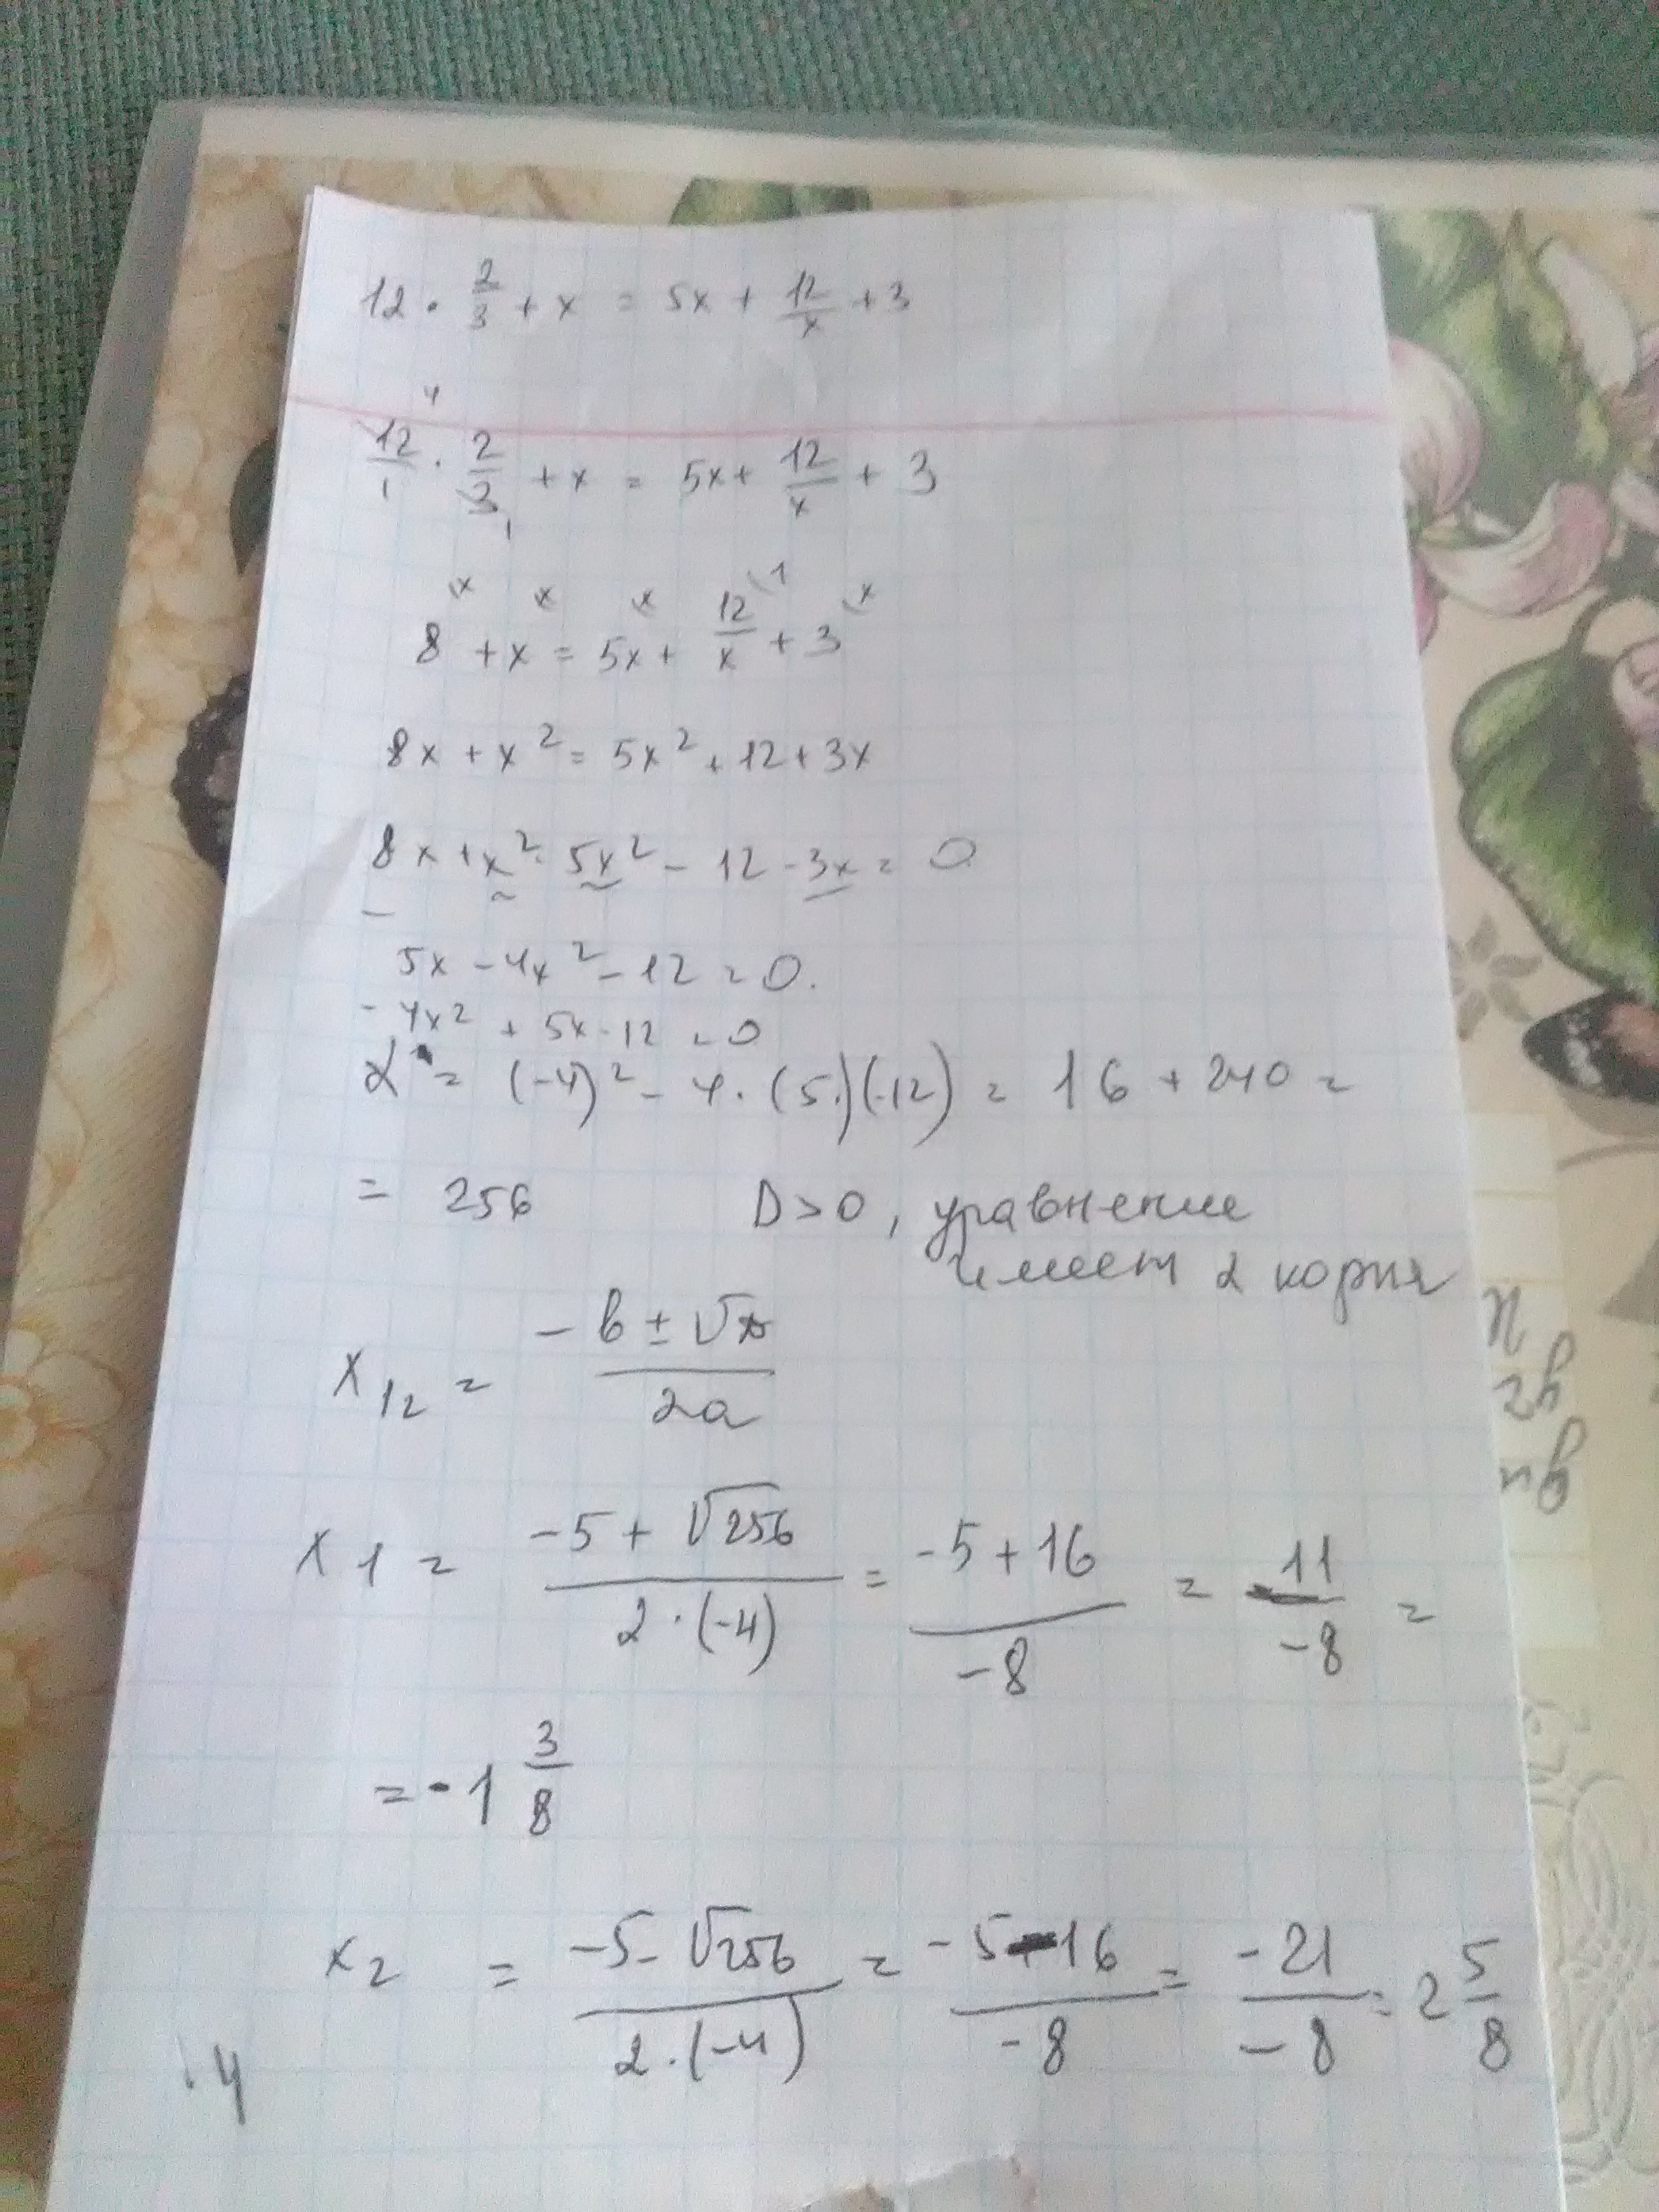 12 · 2/3 + x = 5x + 12/x + 3
4
12/1 · 2/3 + x = 5x + 12/x + 3
1
x x x 1 x
8 + x = 5x + 12/x + 3
8x + x² = 5x² + 12 + 3x
8x + x² - 5x² - 12 - 3x = 0
5x - 4x² - 12 = 0.
- 4x² + 5x - 12 = 0
D = (-4)² - 4 · (5·)(-12) = 16 + 240 =
= 256 D > 0, уравнение
имеет 2 корня
x₁₂ = (- b ± √D)/2a
x₁ = (-5 + √256)/(2 · (-4)) = (-5 + 16)/(-8) = 11/(-8) =
= - 1 3/8
x₂ = (-5 - √256)/(2 · (-4)) = (-5 - 16)/(-8) = (-21)/(-8) = 2 5/8